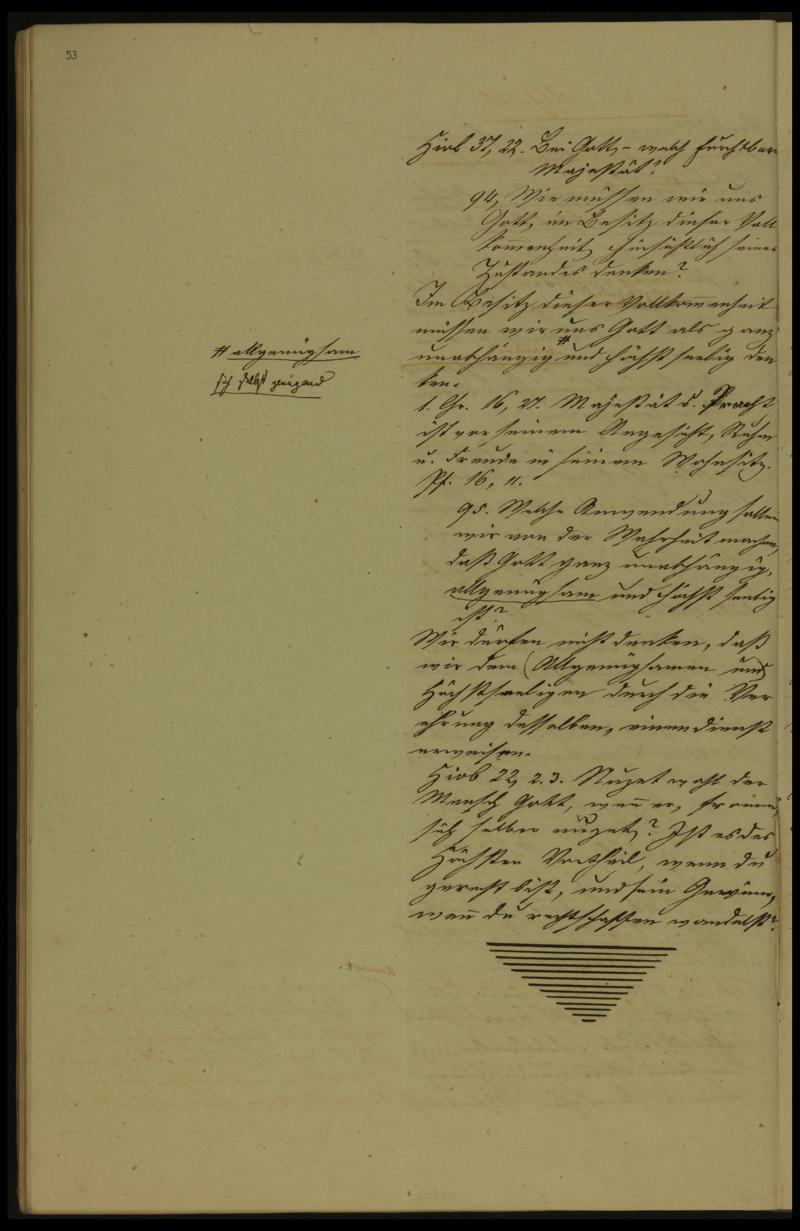 53
Hiob 37, 22. Bei Gott, – welch furchtbare
Majestät!
94, Wie müssen wir uns
Gott, im Besitz dieser Voll
kom̄enheit, hinsichtlich seines
Zustandes denken?
Im Besitz dieser Vollkom̄enheit
müssen wir uns Gott als ganz
unabhängig # und höchst seelig den
ken.
# allgenügsam
sich selbst genügend
1. Chr. 16, 27. Majestät u. Pracht
ist vor seinem Angesicht, Ruhm
u. Freude in seinem Wohnsitz.
Ps. 16, 11.
95. Welche Anwendung sollen
wir von der Wahrheit machen,
daß Gott ganz unabhängig,
allgenügsam und höchst seelig
ist?
Wir dürfen nicht denken, daß
wir dem (Allgenügsamen und)
Höchstseeligen durch die Ver
ehrung desselben, einen dienst
erweisen.
Hiob 22, 2.3. Nuzet wohl der
Mensch Gott, wen̄ er, from̄,
sich selber nuzet? Ist es des
Höchsten Vortheil, wenn du
gerecht bist, und sein Gewinn,
wen̄ du rechtschaffen wandelst?